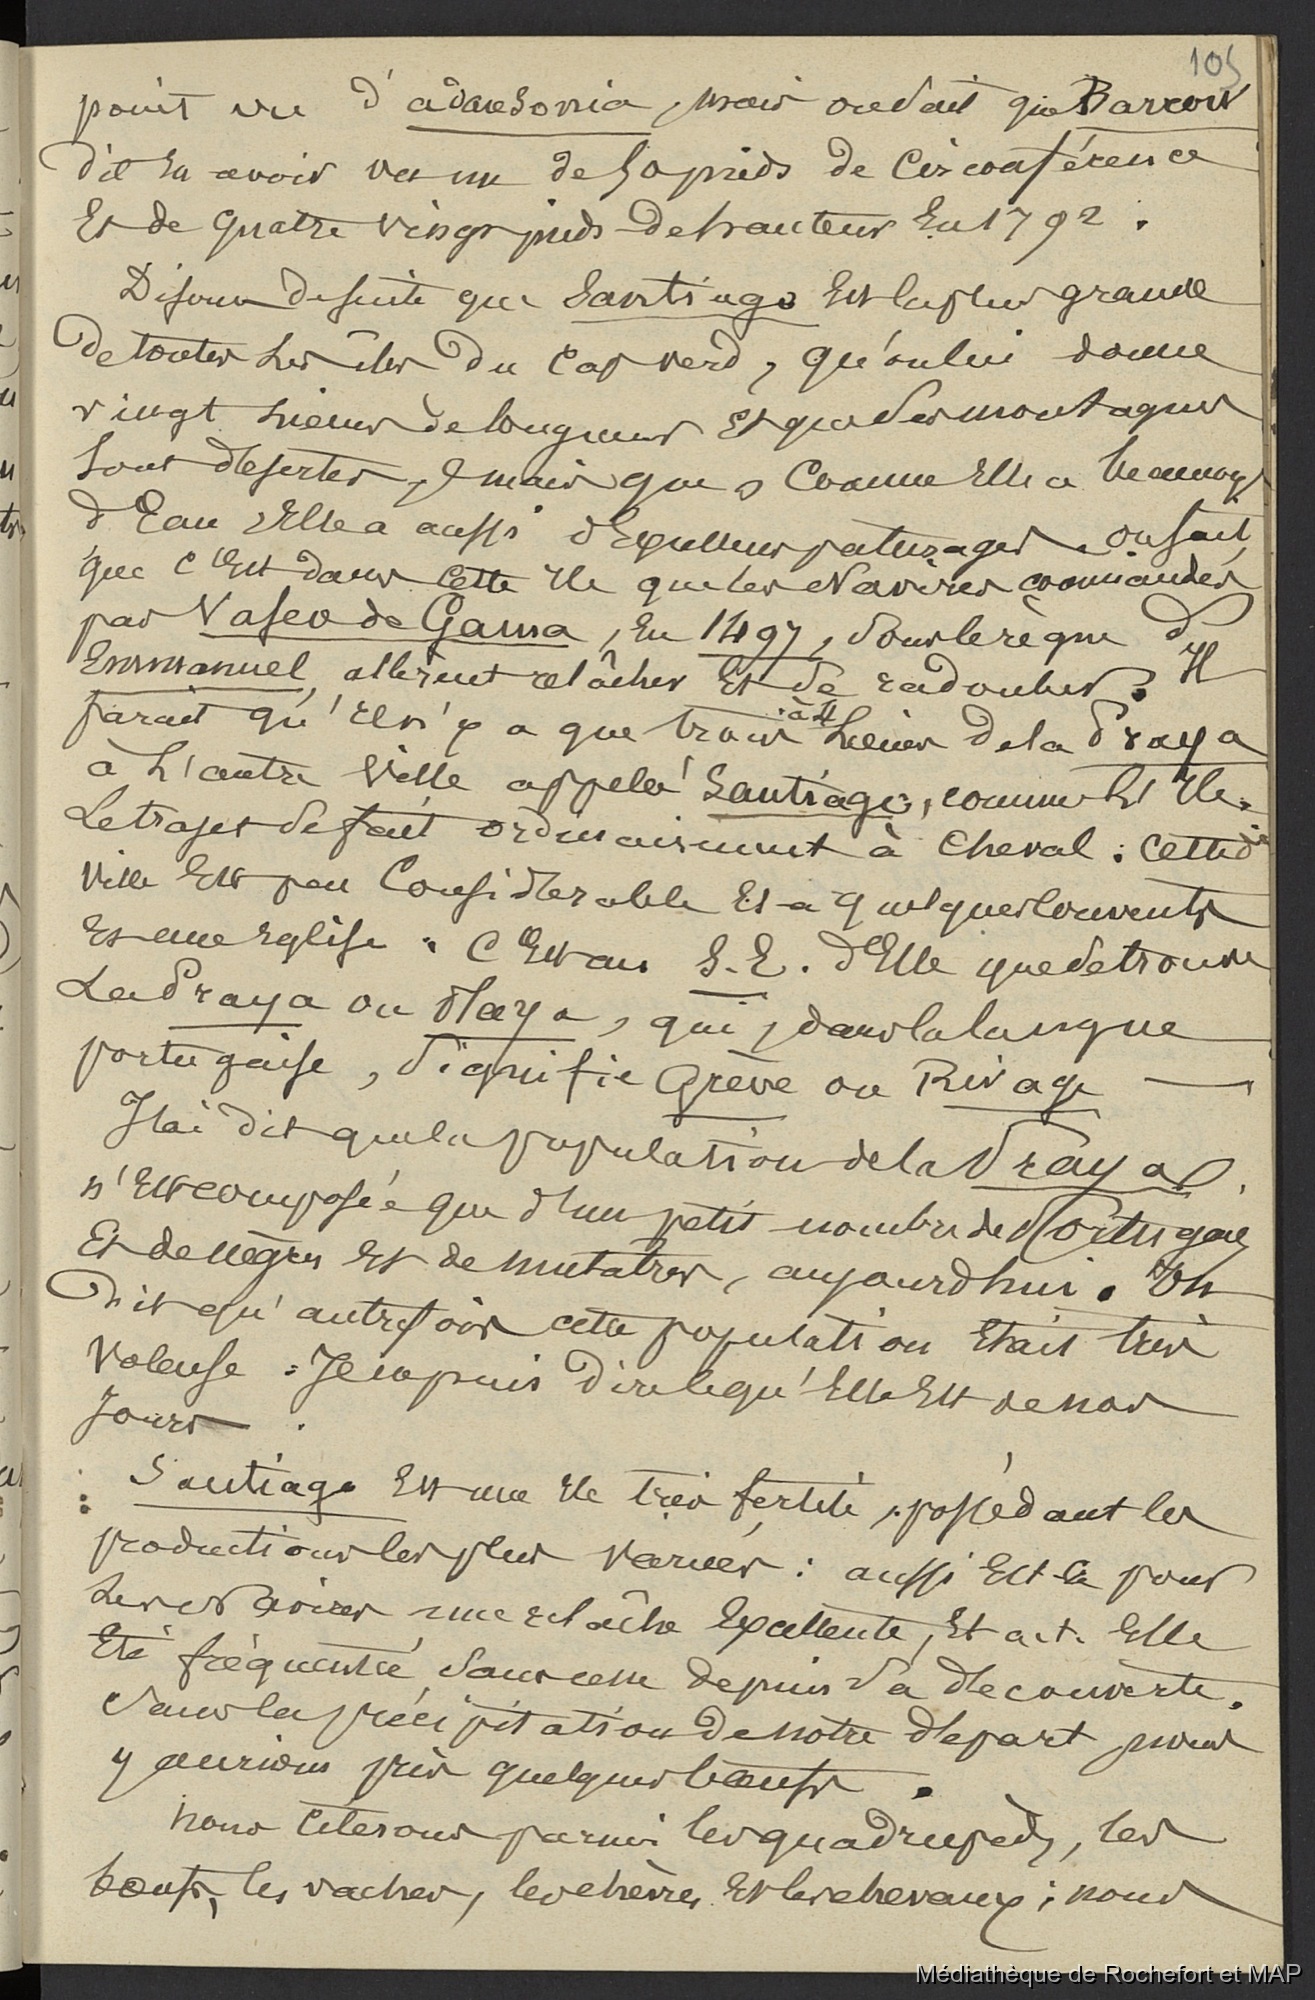 105
point vu d'adansonia, mais on sait que Barrow
dit en avoir vu un de 50 pieds de circonférence
Et de quatre vingt pieds de hauteur En 1792.
Disons de suite que Santiago Est la plus grande
de toutes les îles du Cap verd, qu'on lui donne
vingt lieues de longueur Et que ses montagnes
sont désertes, mais que, comme Elle a beaucoup
d'Eau, Elle a aussi d'Excellens paturages. on sait
que c'Est dans cette Ile que les Navires commandés
par Vasco de Gama, En 1497, sous le règne d'
Emmanuel, allèrent relâcher Et se radouber. Il
parait qu'il n'y a que trois à 4 Lieues de la Praya
à L'autre Ville appelée Santiago, comme L'Ile.
Le trajet se fait ordinairement à cheval : cette
ville Est peu Considérable Et a quelques couvents
Et une Eglise. C'Est au S.E. d'Elle que se trouve
La Praya ou Playa, qui, dans la langue
portugaise, signifie Grève ou Rivage —
J'ai dit que la population de la Praya
n'Est composée que d'un petit nombre de Portugais
Et de nègres Et de mulâtres, aujourd'hui. On
dit qu'autrefois cette population Etait très
voleuse : Je ne puis dire ce qu'Elle Est de nos
jours.
Santiago Est une Ile très fertile, possédant les
productions les plus variées : aussi Est-ce pour
Les Navires une relâche Excellente, Et a-t-Elle
Eté fréquentée sans cesse depuis sa découverte.
Sans la précipitation de notre départ, nous
y aurions pris quelques boeufs.
nous citerons parmi les quadrupèdes, les
boeufs, les vaches, les chèvres Et les chevaux ; nous
Médiathèque de Rochefort et MAP